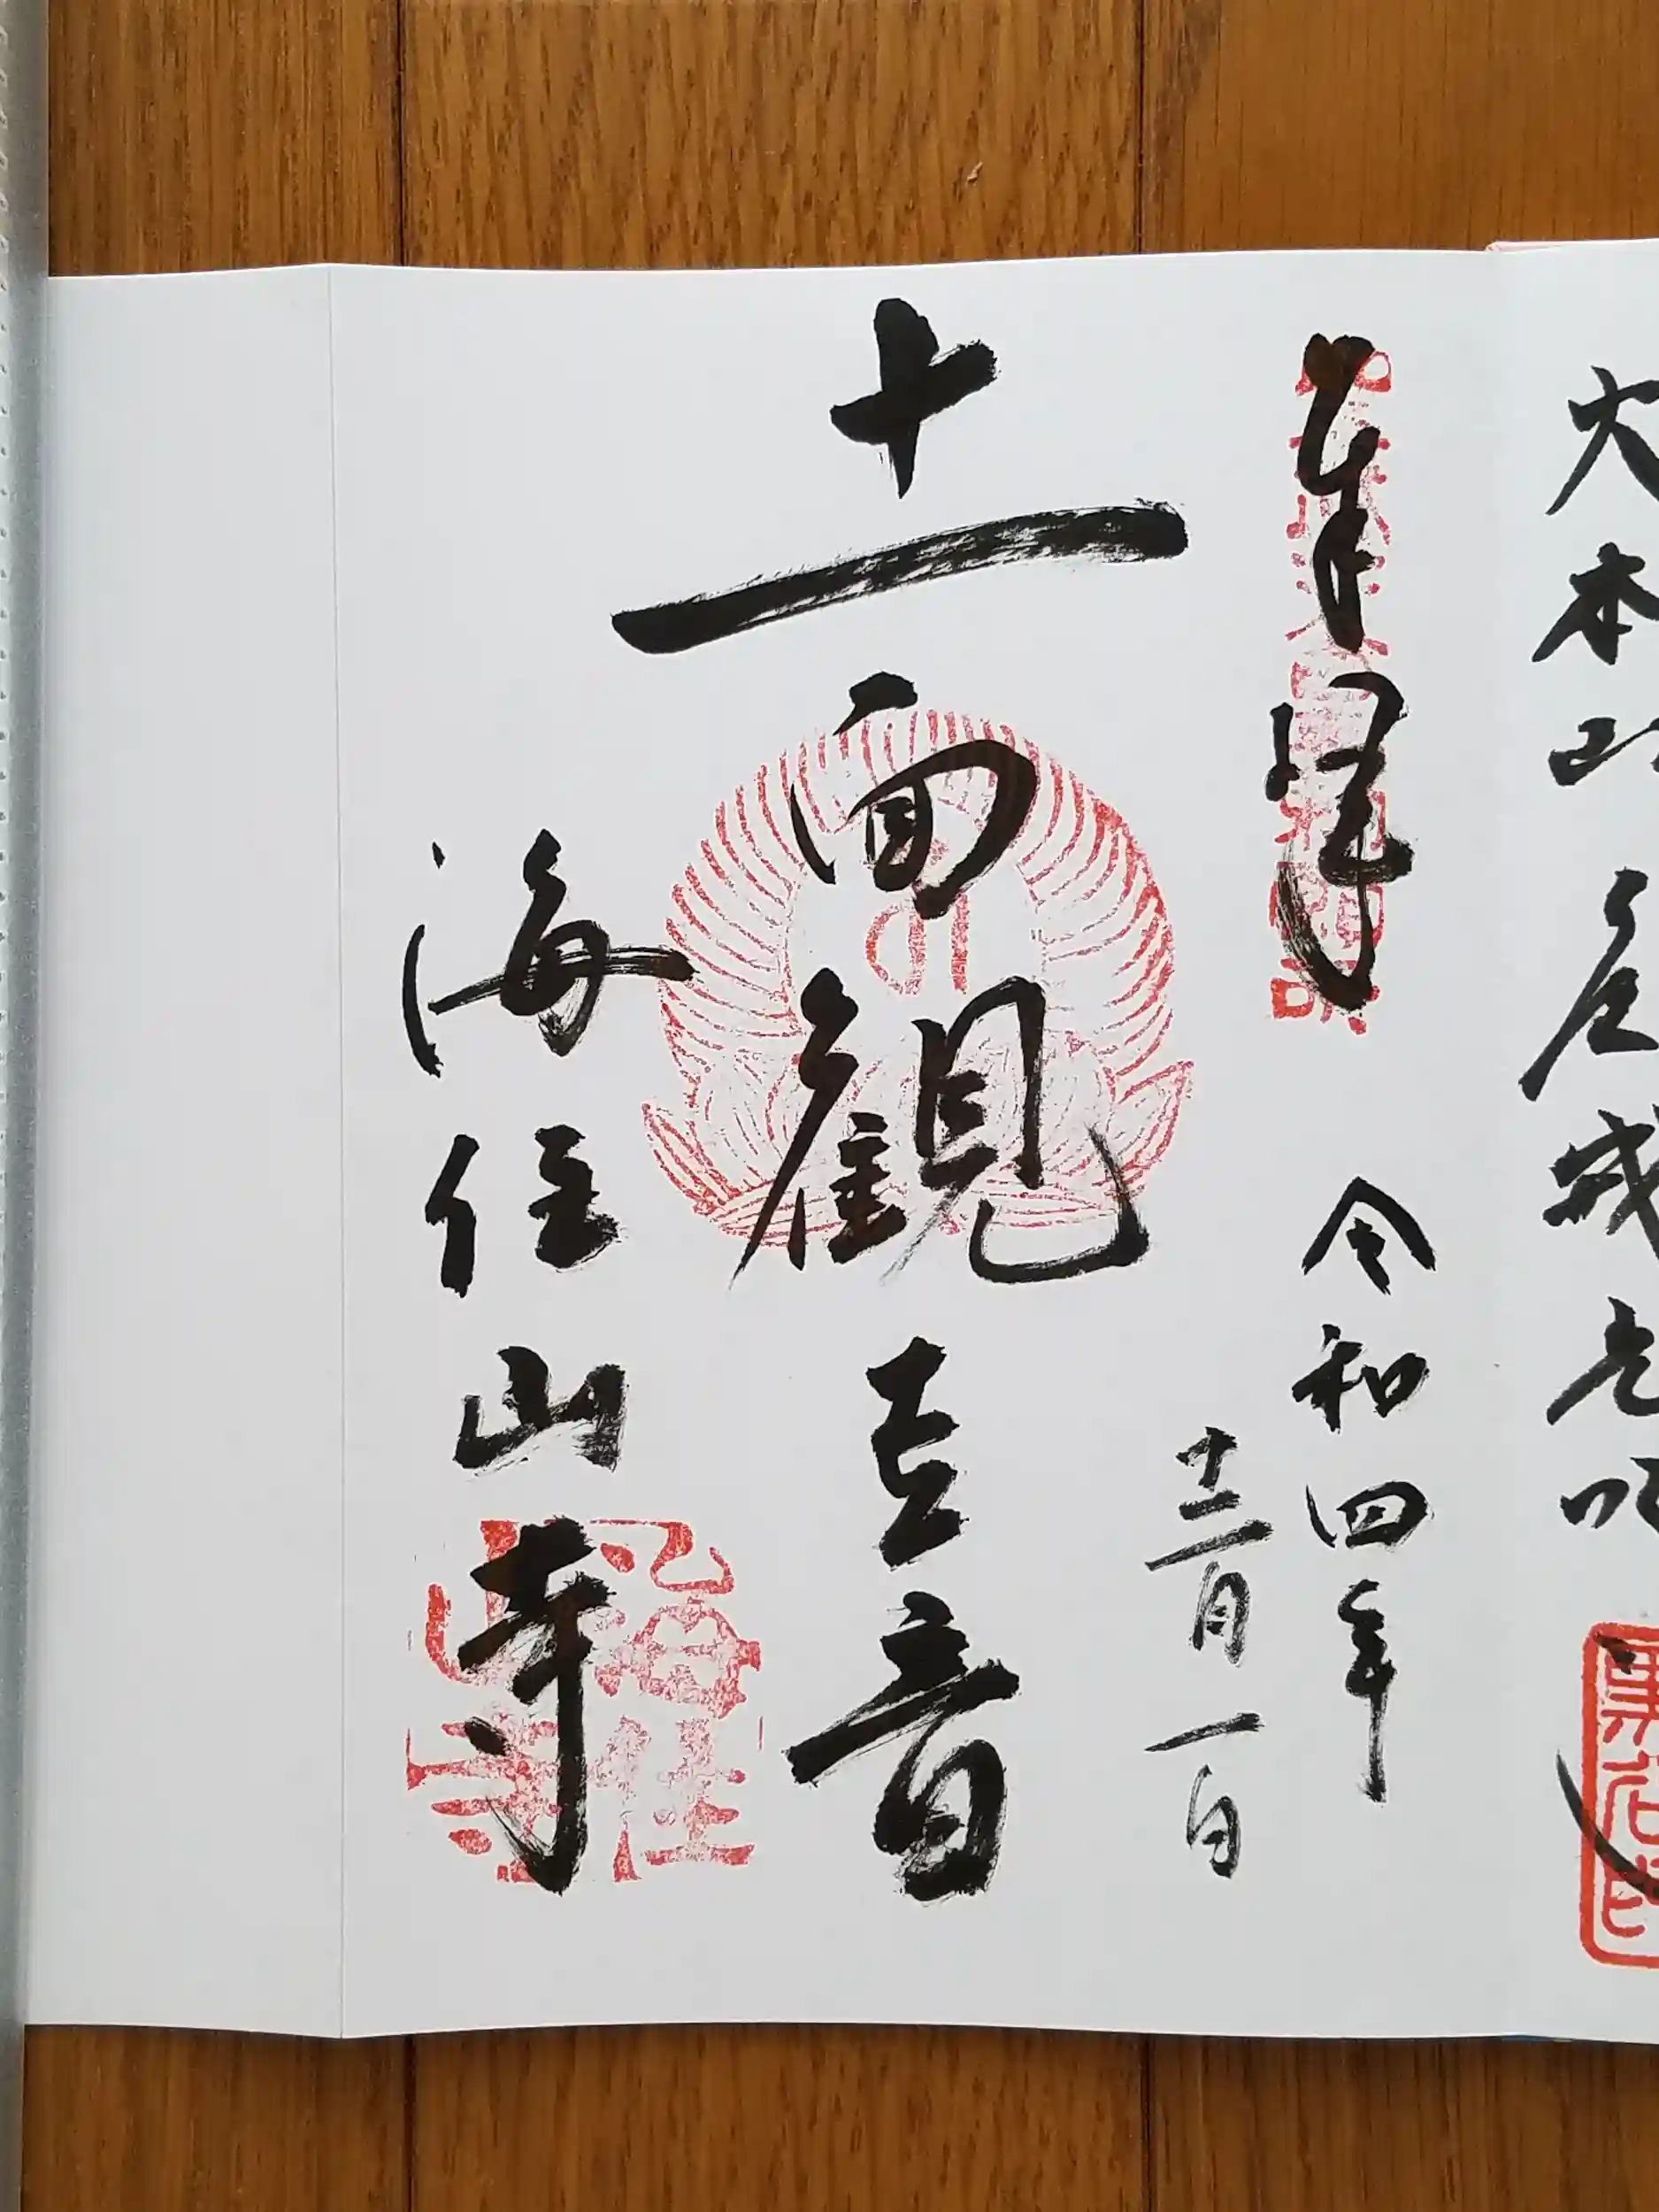 大本山 金戒光明
奉拝 令和四年
十二月一日
十一面観世音
海住山寺